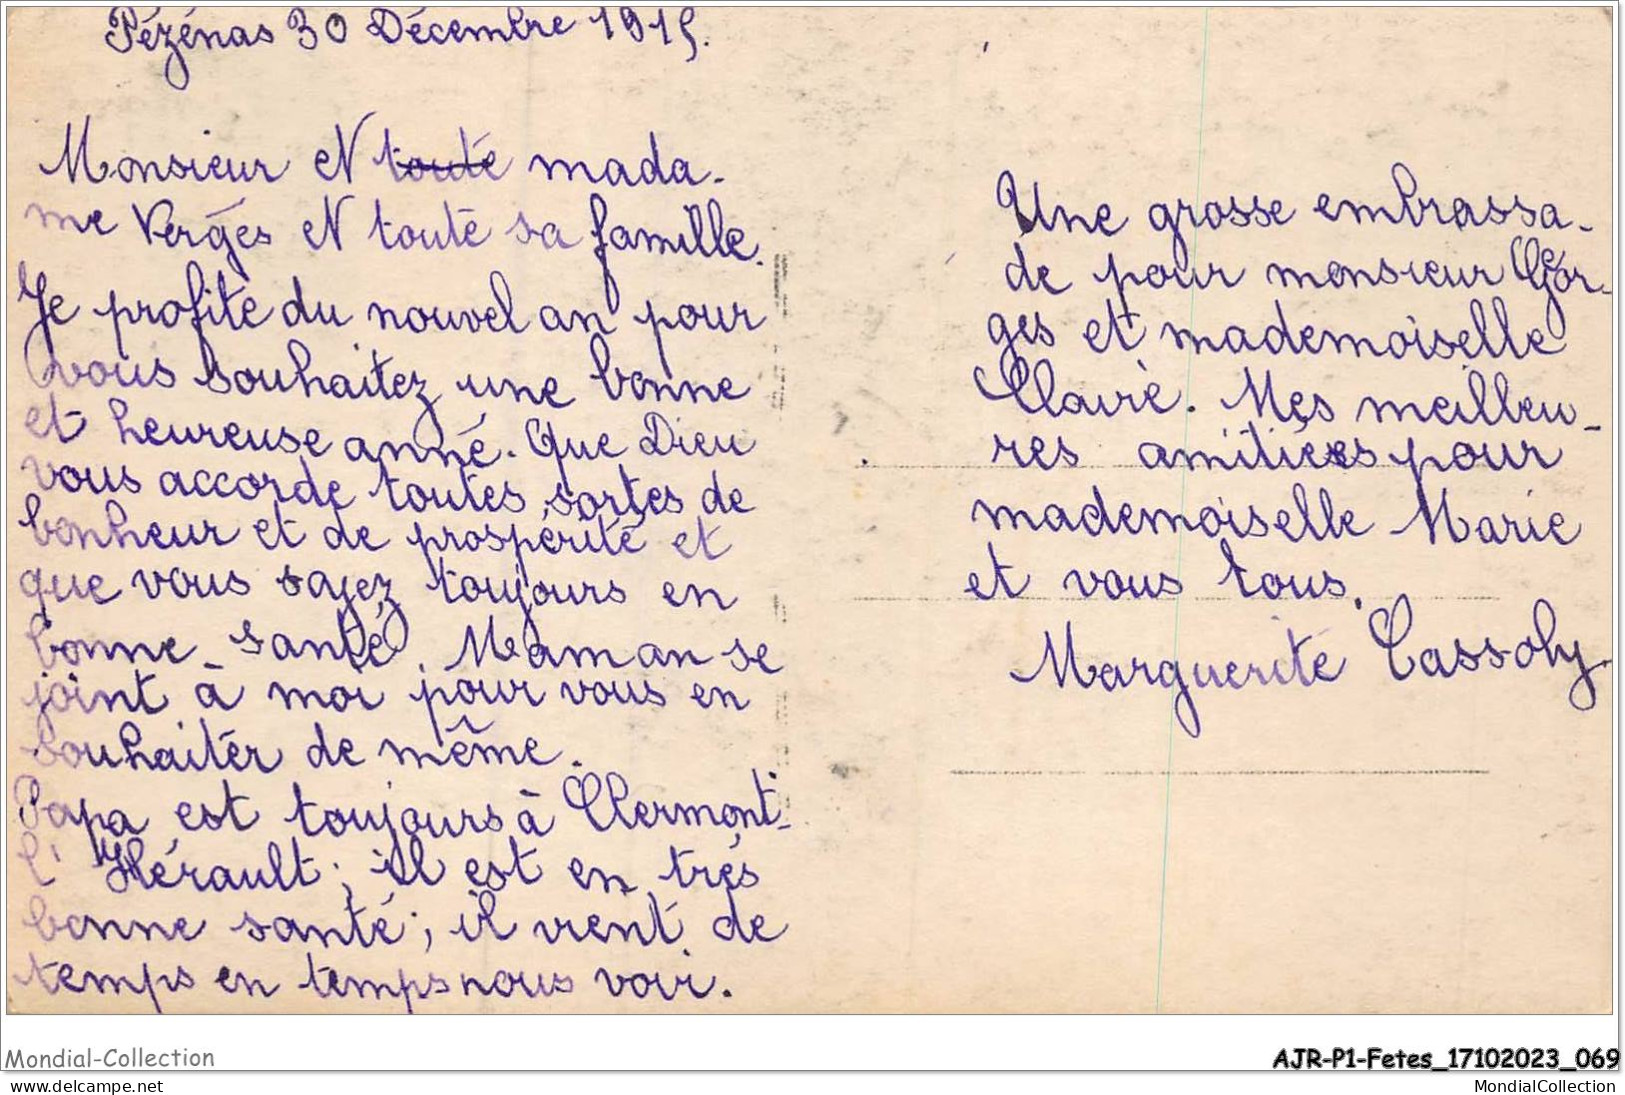 Pézénas 30 Décembre 1915.
Monsieur et touté mada-
me Vergés et touté sa famille.
Je profite du nouvel an pour
vous souhaitez une bonne
et heureuse anné. Que Dieu
vous accorde toutes sortes de
bonheur et de prospérité et
que vous soyez toujours en
bonne santé. Maman se
joint à moi pour vous en
souhaiter de même.
Papa est toujours à Clermont-
l'Hérault; il est en trés
bonne santé; il vient de
temps en temps nous voir.
Une grosse embrassa-
de pour monsieur Geor-
ges et mademoiselle
Claire. Mes meilleu-
res amitiées pour
mademoiselle Marie
et vous tous.
Marguerite Cassoly.
Mondial-Collection
AJR-P1-Fetes_17102023_069
www.delcampe.net
MondialCollection